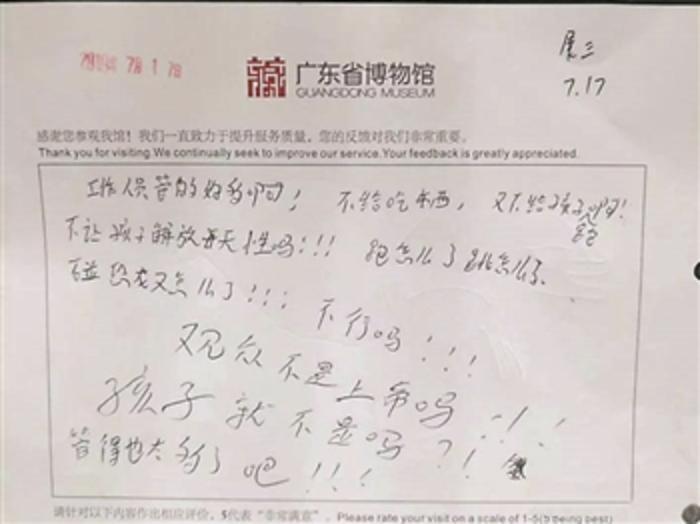 展三
7.17
广东省博物馆
GUANGDONG MUSEUM
感谢您参观我馆！我们一直致力于提升服务质量，您的反馈对我们非常重要。
Thank you for visiting.We continually seek to improve our service.Your feedback is greatly appreciated.
工作人员管的好多啊！ 不给吃东西，又不给孩子跑啊！
不让孩子解放天性吗！！！ 跑怎么了 跳怎么了
碰恐龙又怎么了！！！ 不行吗！！！
观众不是上帝吗！！！
孩子就不是吗？！！
管得也太多了吧！！！
请针对以下内容作出相应评价，5代表“非常满意”， Please rate your visit on a scale of 1-5(5 being best)